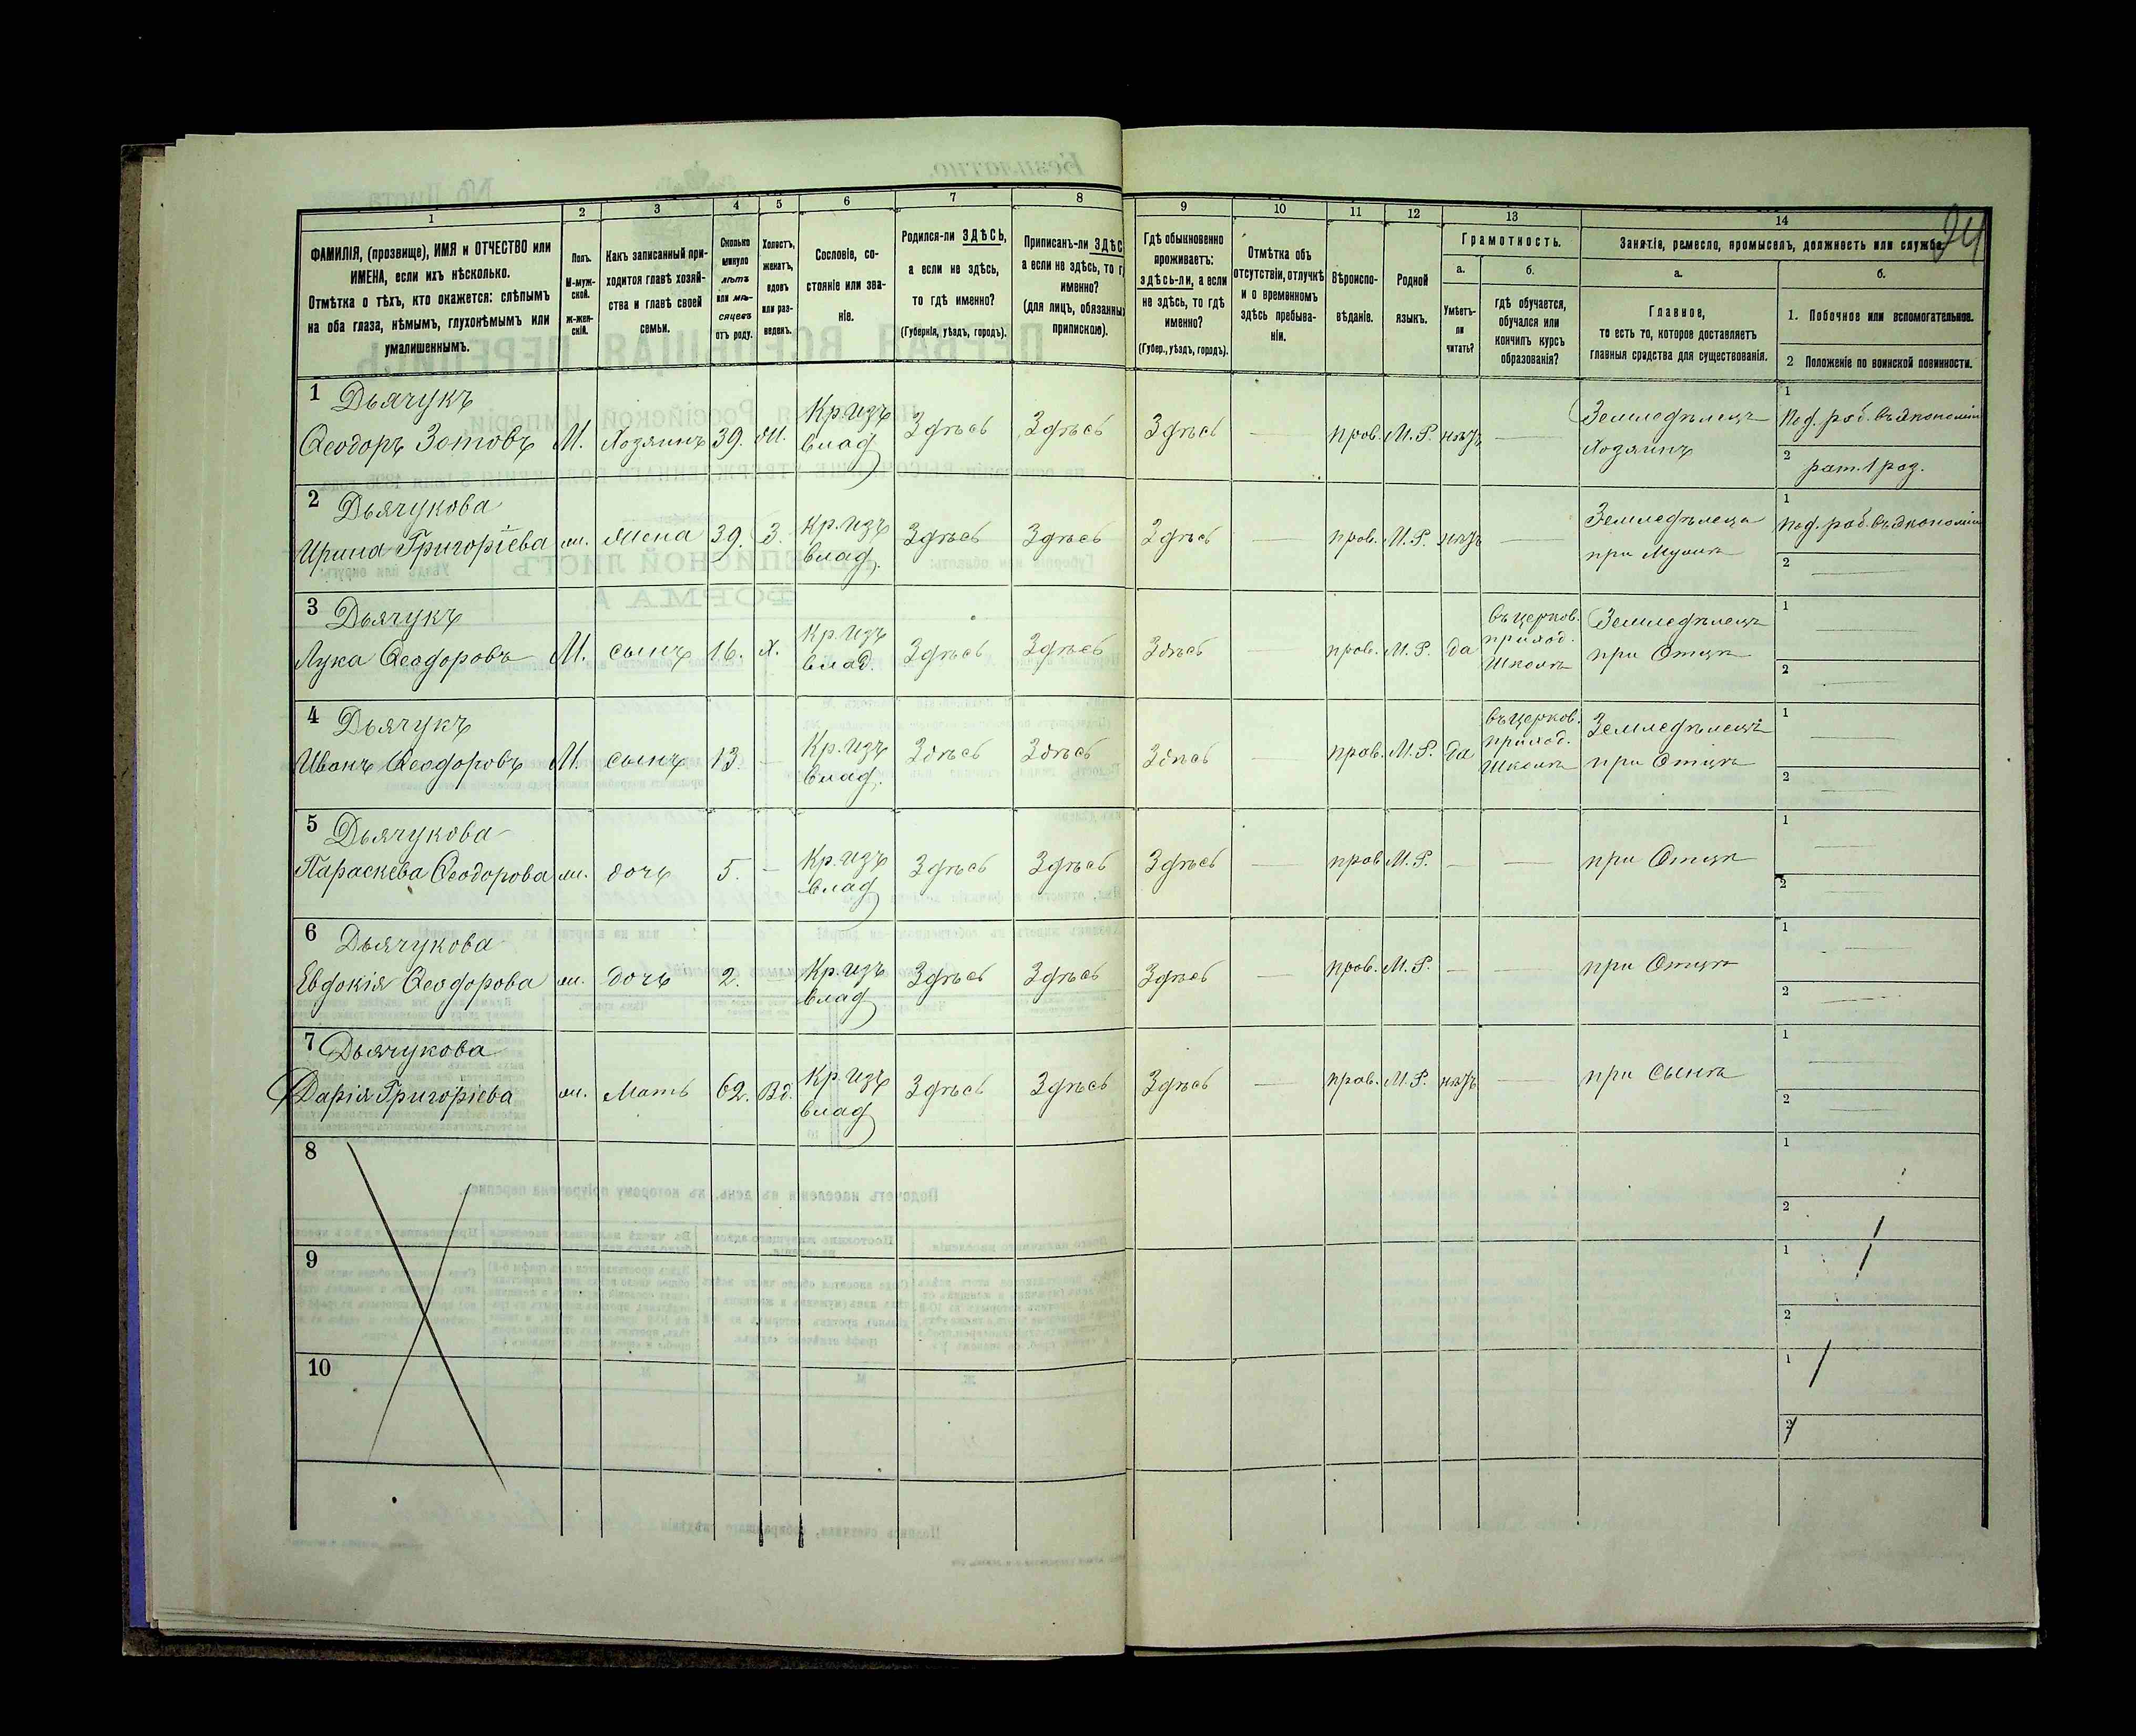 94
1
2
3
4
5
6
7
8
9
10
11
12
13
14
ФАМИЛІЯ, (прозвище), ИМЯ и ОТЧЕСТВО или
ИМЕНА, если ихъ нѣсколько.
Отмѣтка о тѣхъ, кто окажется: слѣпымъ
на оба глаза, нѣмымъ, глухонѣмымъ или
умалишеннымъ.
Полъ.
М-муж-
ской.
Ж-жен-
скій.
Какъ записанный при-
ходится главѣ хозяй-
ства и главѣ своей
семьи.
Сколько
минуло
лѣтъ
или мѣ-
сяцевъ
отъ роду.
Холостъ,
женатъ,
вдовъ
или раз-
веденъ.
Сословіе, со-
стояніе или зва-
ніе.
Родился-ли ЗДѢСЬ,
а если не здѣсь,
то гдѣ именно?
(Губернія, уѣздъ, городъ).
Приписанъ-ли ЗДѢС
а если не здѣсь, то г
именно?
(для лицъ, обязанны
припискою).
Гдѣ обыкновенно
проживаетъ:
здѣсь-ли, а если
не здѣсь, то гдѣ
именно?
(Губер., уѣздъ, городъ).
Отмѣтка объ
отсутствіи, отлучкѣ
и о временномъ
здѣсь пребыва-
ніи.
Вѣроиспо-
вѣданіе.
Родной
языкъ.
Грамотность.
а.
Умѣетъ-
ли
читать?
б.
гдѣ обучается,
обучался или
кончилъ курсъ
образованія?
Занятіе, ремесло, промыселъ, должность или служба.
а.
Главное,
то есть то, которое доставляетъ
главныя средства для существованія.
б.
1. Побочное или вспомогательное.
2 Положеніе по воинской повинности.
1 Дьячукъ
Ѳеодоръ Зотовъ М. Хозяинъ 39. Ж. Кр. изъ влад Здѣсь Здѣсь Здѣсь — прав. М.Р. нѣтъ — Земледѣлецъ Хозяинъ
1 Под. раб. въ экономіи
2 рат. 1 раз.
2 Дьячукова
Ирина Григоріева ж. Жена 39. З. Кр. изъ влад. Здѣсь Здѣсь Здѣсь — прав. М.Р. нѣтъ — Земледѣлецъ при Мужѣ
1 Под. раб. въ экономіи
2 —
3 Дьячукъ
Лука Ѳеодоровъ М. сынъ 16. х. Кр. изъ влад. Здѣсь Здѣсь Здѣсь — прав. М.Р. да въ церков. приход. школѣ Земледѣлецъ при Отцѣ
1 —
2 —
4 Дьячукъ
Иванъ Ѳеодоровъ М. сынъ 13. — Кр. изъ влад. Здѣсь Здѣсь Здѣсь — прав. М.Р. да въ церков. приход. школѣ Земледѣлецъ при Отцѣ
1 —
2 —
5 Дьячукова
Параскева Ѳеодорова ж. дочь 5. — Кр. изъ влад Здѣсь Здѣсь Здѣсь — прав М.Р. — — при Отцѣ
1 —
2 —
6 Дьячукова
Евдокія Ѳеодорова ж. дочь 2. — Кр. изъ влад Здѣсь Здѣсь Здѣсь — прав. М.Р. — — при Отцѣ
1 —
2 —
7 Дьячукова
Дарія Григоріева ж. Мать 62. Вд. Кр. изъ влад Здѣсь Здѣсь Здѣсь — прав. М.Р. нѣтъ — при Сынѣ
1 —
2 —
8
1
2
9
1
2
10
1
2